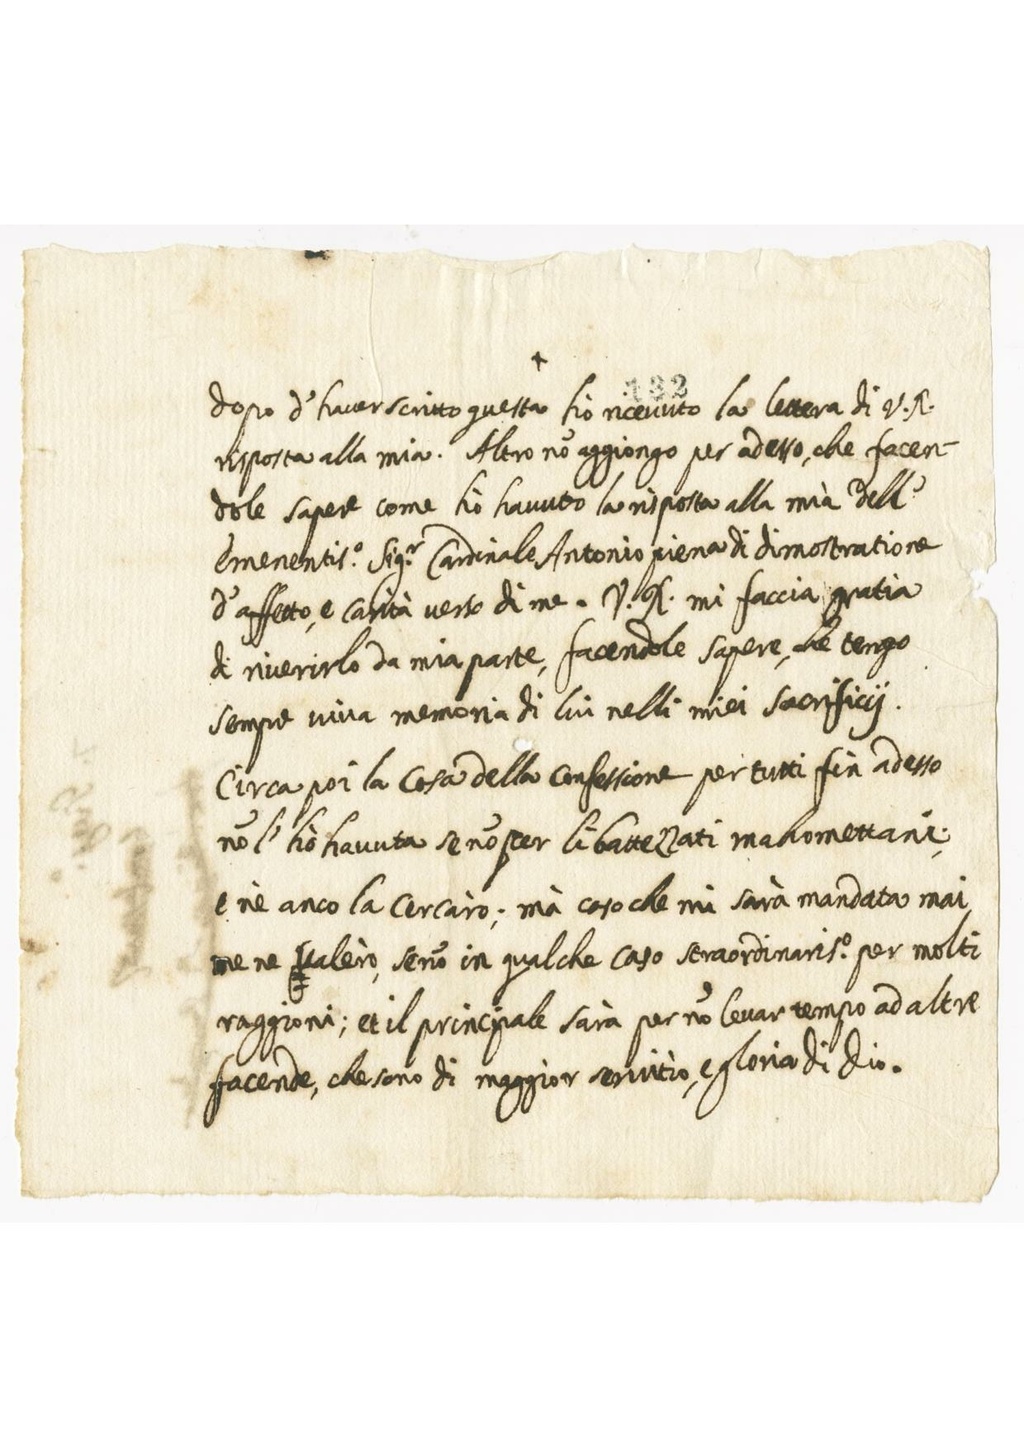 +
132
dopo d'haver scritto questa hò ricevuto la lettera di V.R.
risposta alla mia. Altro nõ aggiongo per adesso, che facen-
dole sapere come hò havuto la risposta alla mià dell'
Emenentis.º Sig.r Cardinale Antonio piena di dimostratione
d'affetto, e carità verso di me. V.R. mi faccia gratia
di riverirlo da mia parte, facendole sapere, che tengo
sempre viva memoria di lui nelli miei sacrificij.
Circa poi la cosa della confessione per tutti fin adesso
nõ l'hò havuta se nõ per li battezzati mahomettani;
e nè anco la cercàro; mà caso che mi sarà mandata mai
me ne valerò, se nõ in qualche caso straordinaris.º per molti
raggioni; et il principale sarà per nõ levar tempo ad altre
facende, che sono di maggior servitio, e gloria di Dio.